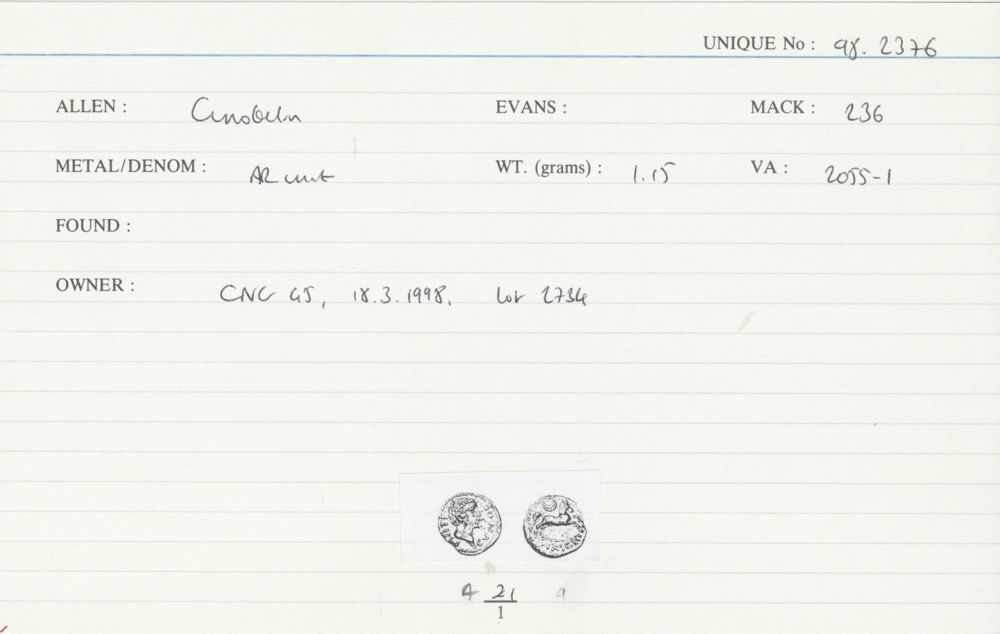 UNIQUE No : 98. 2376
ALLEN : Cunobelin EVANS : MACK : 236
METAL/DENOM : AR unit WT. (grams) : 1.15 VA : 2055-1
FOUND :
OWNER : CNG 45, 18.3.1998, Lot 2734
A 21 a
1